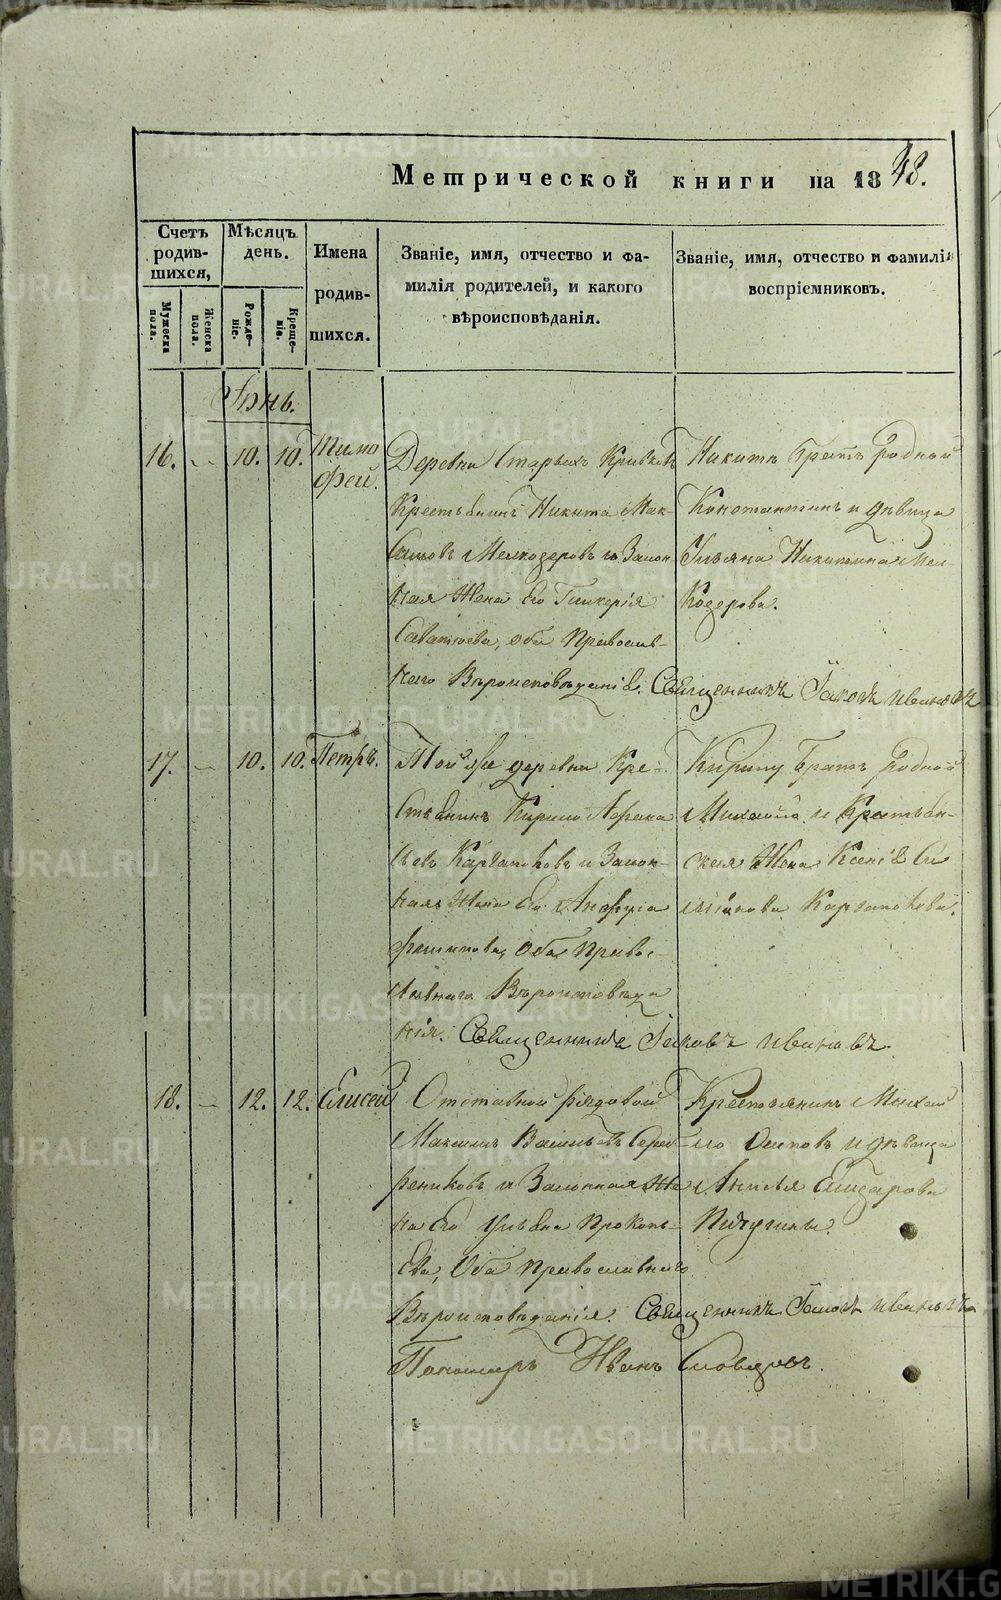 Метрической книги на 1848.
Счетъ родив-шихся,
Мѣсяцъ день.
Имена родив-шихся.
Званіе, имя, отчество и фа-
милія родителей, и какого
вѣроисповѣданія.
Званіе, имя, отчество и фамилія
воспріемниковъ.
Мужеска пола.
Женска пола.
Рожде-ніе.
Креще-ніе.
Іюнь.
16. - 10. 10. Тимо
фей.
Деревни Старыхъ
Крестьянинъ Никита Мак-
симовъ Мелкозеровъ и закон-
ная жена его Гликерія
Саватіева, оба православ-
наго Вѣроисповѣданія. Священникъ Іаковъ Ивановъ
Никиты братъ родной
Константинъ и дѣвица
Ульяна Никитина Мел-
козерова.
17. - 10. 10. Петръ.
Той же деревни Кре-
стьянинъ Кирило Афана
сьевъ и закон-
ная жена его
оба Право-
славнаго Вѣроисповѣда
нія. Священникъ Іаковъ Ивановъ.
Кирилу братъ родной
Михаилъ и Крестьян-
ская жена Ксенія
18. - 12. 12. Елисей
Отставной рядовой
Максимъ Васильевъ Сереб-
рениковъ и законная же
на его Ульяна Прокопь-
ева, оба православнаго
Вѣроисповѣданія. Священникъ Іаковъ Ивановъ
Крестьянинъ Михаи
ло Осиповъ и дѣвица
Елизарова
Пичугины.
Пономарь Иванъ Словцовъ.
METRIKI.GASO-URAL.RU